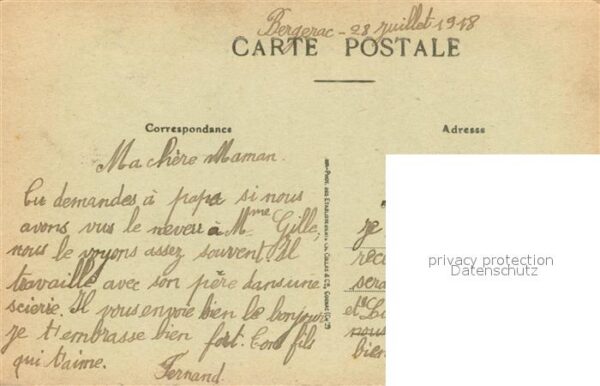 Bergerac - 28 juillet 1918
CARTE POSTALE
Correspondance
Adresse
Ma chère Maman.
Tu demandes à papa si nous
avons vus le neveu à Mme Gille,
nous le voyons assez souvent. Il
travaille avec son père dans une
scierie. Il vous envoie bien le bonjour
je t'embrasse bien fort. Ton fils
qui t'aime.
Fernand.
je
rece
sera
et
nous
bien
privacy protection
Datenschutz